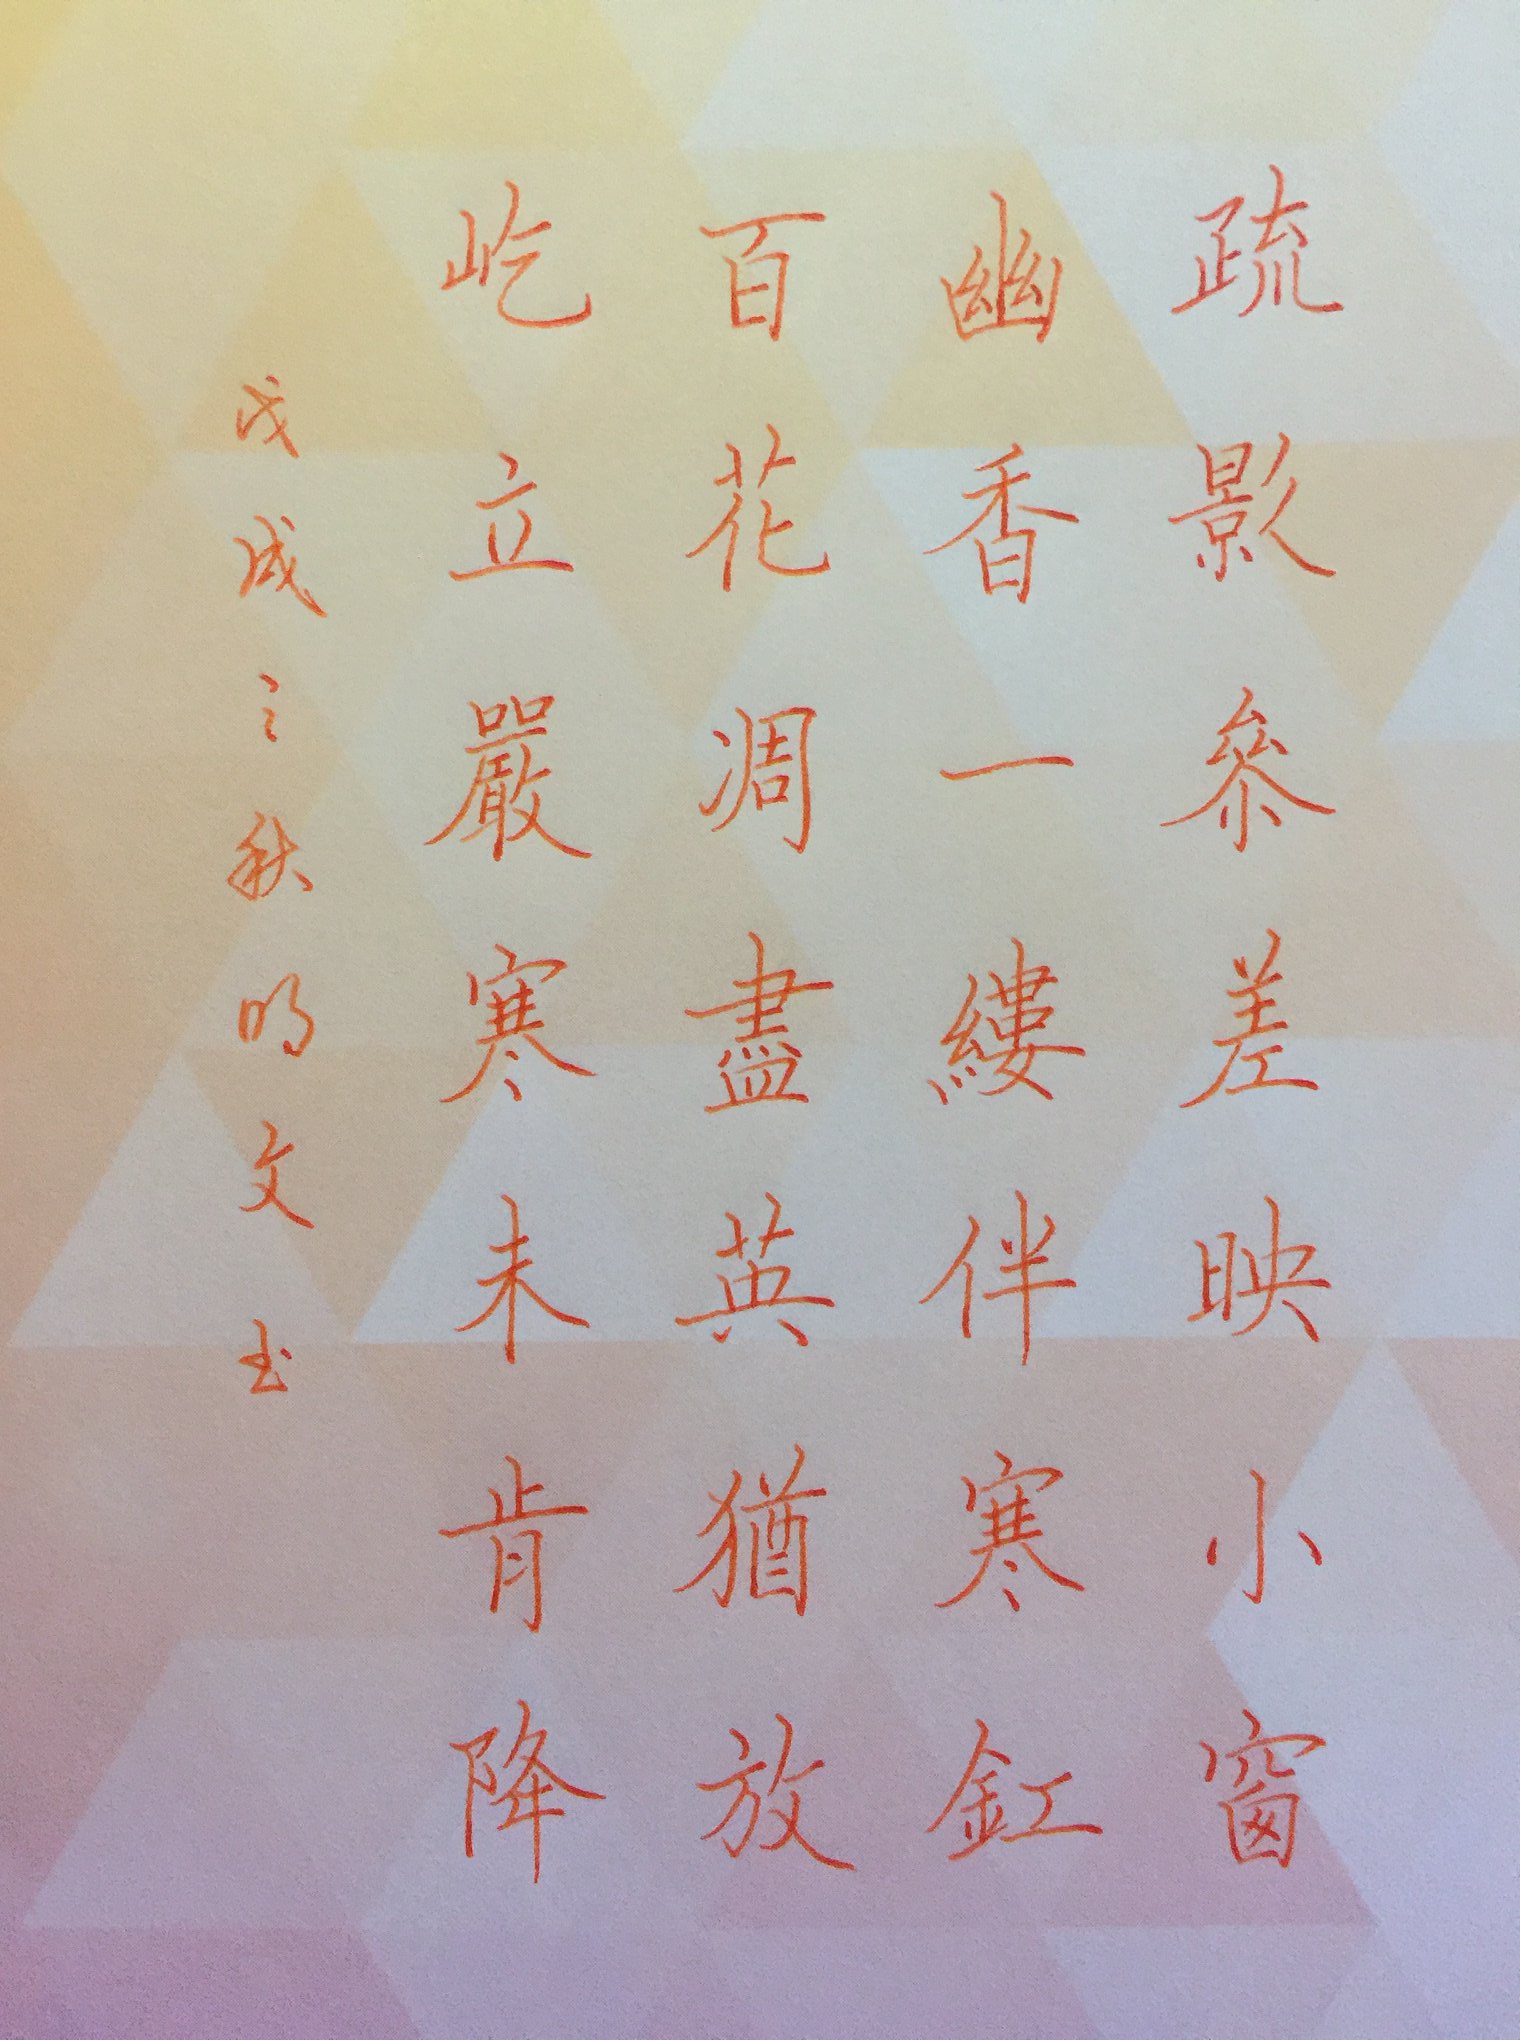 疏影參差映小窗
幽香一縷伴寒釭
百花凋盡英猶放
屹立嚴寒未肯降
戊戌之秋明文书